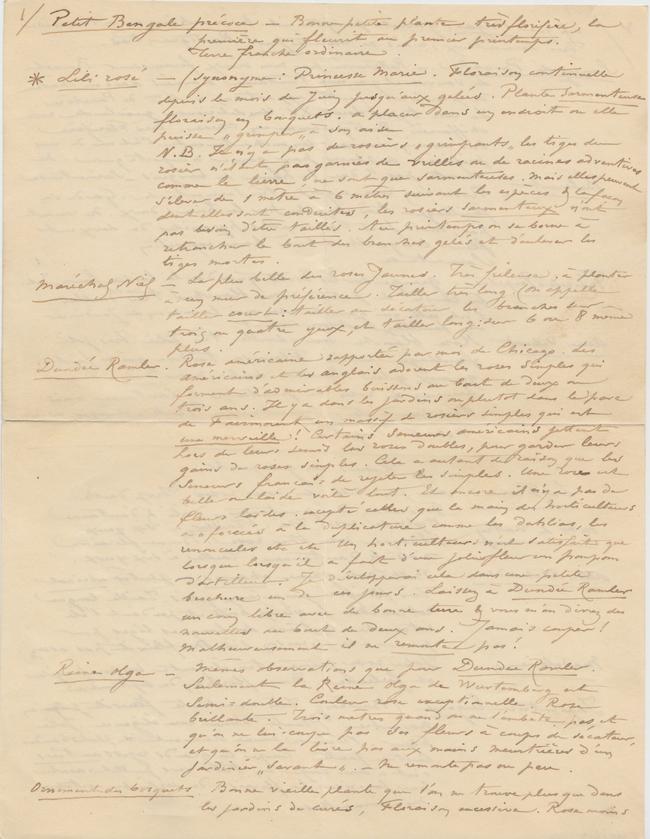 1/ Petit Bengale précoce — Bonne petite plante très florifère, la
première qui fleurit au premier printemps.
Terre franche ordinaire
* Lili rosé — (synonyme : Princesse Marie. Floraison continuelle
depuis le mois de Juin jusqu'aux gelées. Plante sarmenteuse
floraison en bouquets. à placer dans un endroit ou elle
puisse „grimper„ à son aise
N.B. Il n'y a pas de rosiers „grimpants„ les tiges du
rosier n'étant pas garnies de vrilles ou de racines adventives
comme le lierre, ne sont que sarmenteuses. Mais elles peuvent
s'élever de 1 mètre à 6 mètres suivant les espèces & la façon
dont elles sont conduites, les rosiers sarmenteux n'ont
pas besoin d'être taillés. Au printemps on se borne à
retrancher le bout des branches gelés et d'enlever les
tiges mortes.
Maréchal Niel — La plus belle des roses Jaunes. Très frileuse, à planter
à un mur de préférence. Tailler très long (on appelle
tailler court : tailler au sécateur les branches sur
trois ou quatre yeux, et tailler long : sur 6 ou 8 même
plus.
Dundée Rambler. Rose américaine rapportée par moi de Chicago. Les
américains et les anglais adorent les roses simples qui
forment d'admirables buissons au bout de deux ou
trois ans. Il y a dans les jardins ou plutot dans le parc
de Fairmount un massif de rosiers simples qui est
une merveille ! Certains semeurs américains jettent
lors de leurs semis les roses doubles, pour garder leurs
gains de roses simples. Cela a autant de raison que les
semeurs français de rejeter les simples. Une rose est
belle ou laide voila tout. Et encore il n'y a pas de
fleurs laides. excepté celles que la main des horticulteurs
a forcées à la duplicature comme les dahlias, les
renoncules etc etc Un horticulteur n'est satisfait que
lorsque lorsqu'il a fait d'une jolie fleur un pompon
d'artilleur. Je développerai cela dans une petite
brochure un de ces jours. Laissez à Dundée Rambler
un coin libre avec de bonne terre & vous m'en direz des
nouvelles au bout de deux ans. Jamais couper !
Malheureusement il ne remonte pas !
Reine Olga — Mêmes observations que pour Dundee Rambler.
Seulement la Reine Olga de Wurtemberg est
Semi-double. Couleur rose exceptionnelle. Rose
brillante. Trois mètres quand on ne l'embête pas, et
qu'on ne lui coupe pas ses fleurs à coups de sécateur,
et qu'on ne la livre pas aux mains meurtrières d'un
Jardinier „savant„. — Ne remonte pas ou peu.
Ornement des bosquets Bonne vieille plante que l'on ne trouve plus que dans
les jardins de curés, Floraison excessive. Rose moins